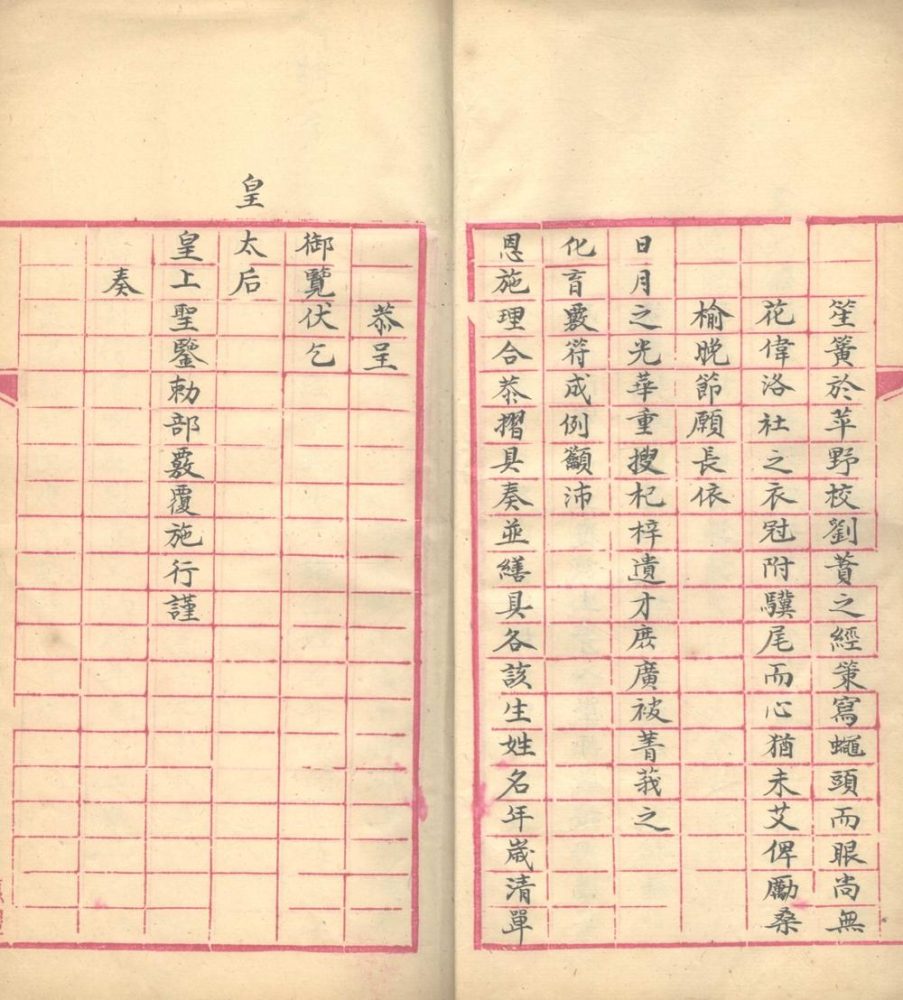 笙簧於苹野校劉蕡之經策寫蠅頭而眼尚無
花偉洛社之衣冠附驥尾而心猶未艾俾勵桑
榆晚節願長依
日月之光華重搜杞梓遺才庶廣被菁莪之
化育覈符成例籲沛
恩施理合恭摺具奏並繕具各該生姓名年歲清單
恭呈
御覽伏乞
皇太后
皇上聖鑒勅部覈覆施行謹
奏